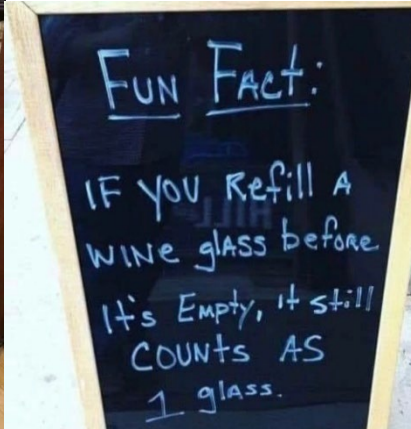 FUN FACT:
IF YOU Refill A
WINE glASS before
It's Empty, it still
COUNTS AS
1 glASS.